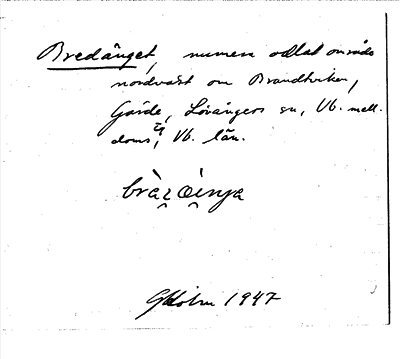 Bredänget, numera odlat område
nordväst om Brandtviken,
Gärde, Lövångers sn, Vb. mell.
doms, Vb. län.
GHolm 1947